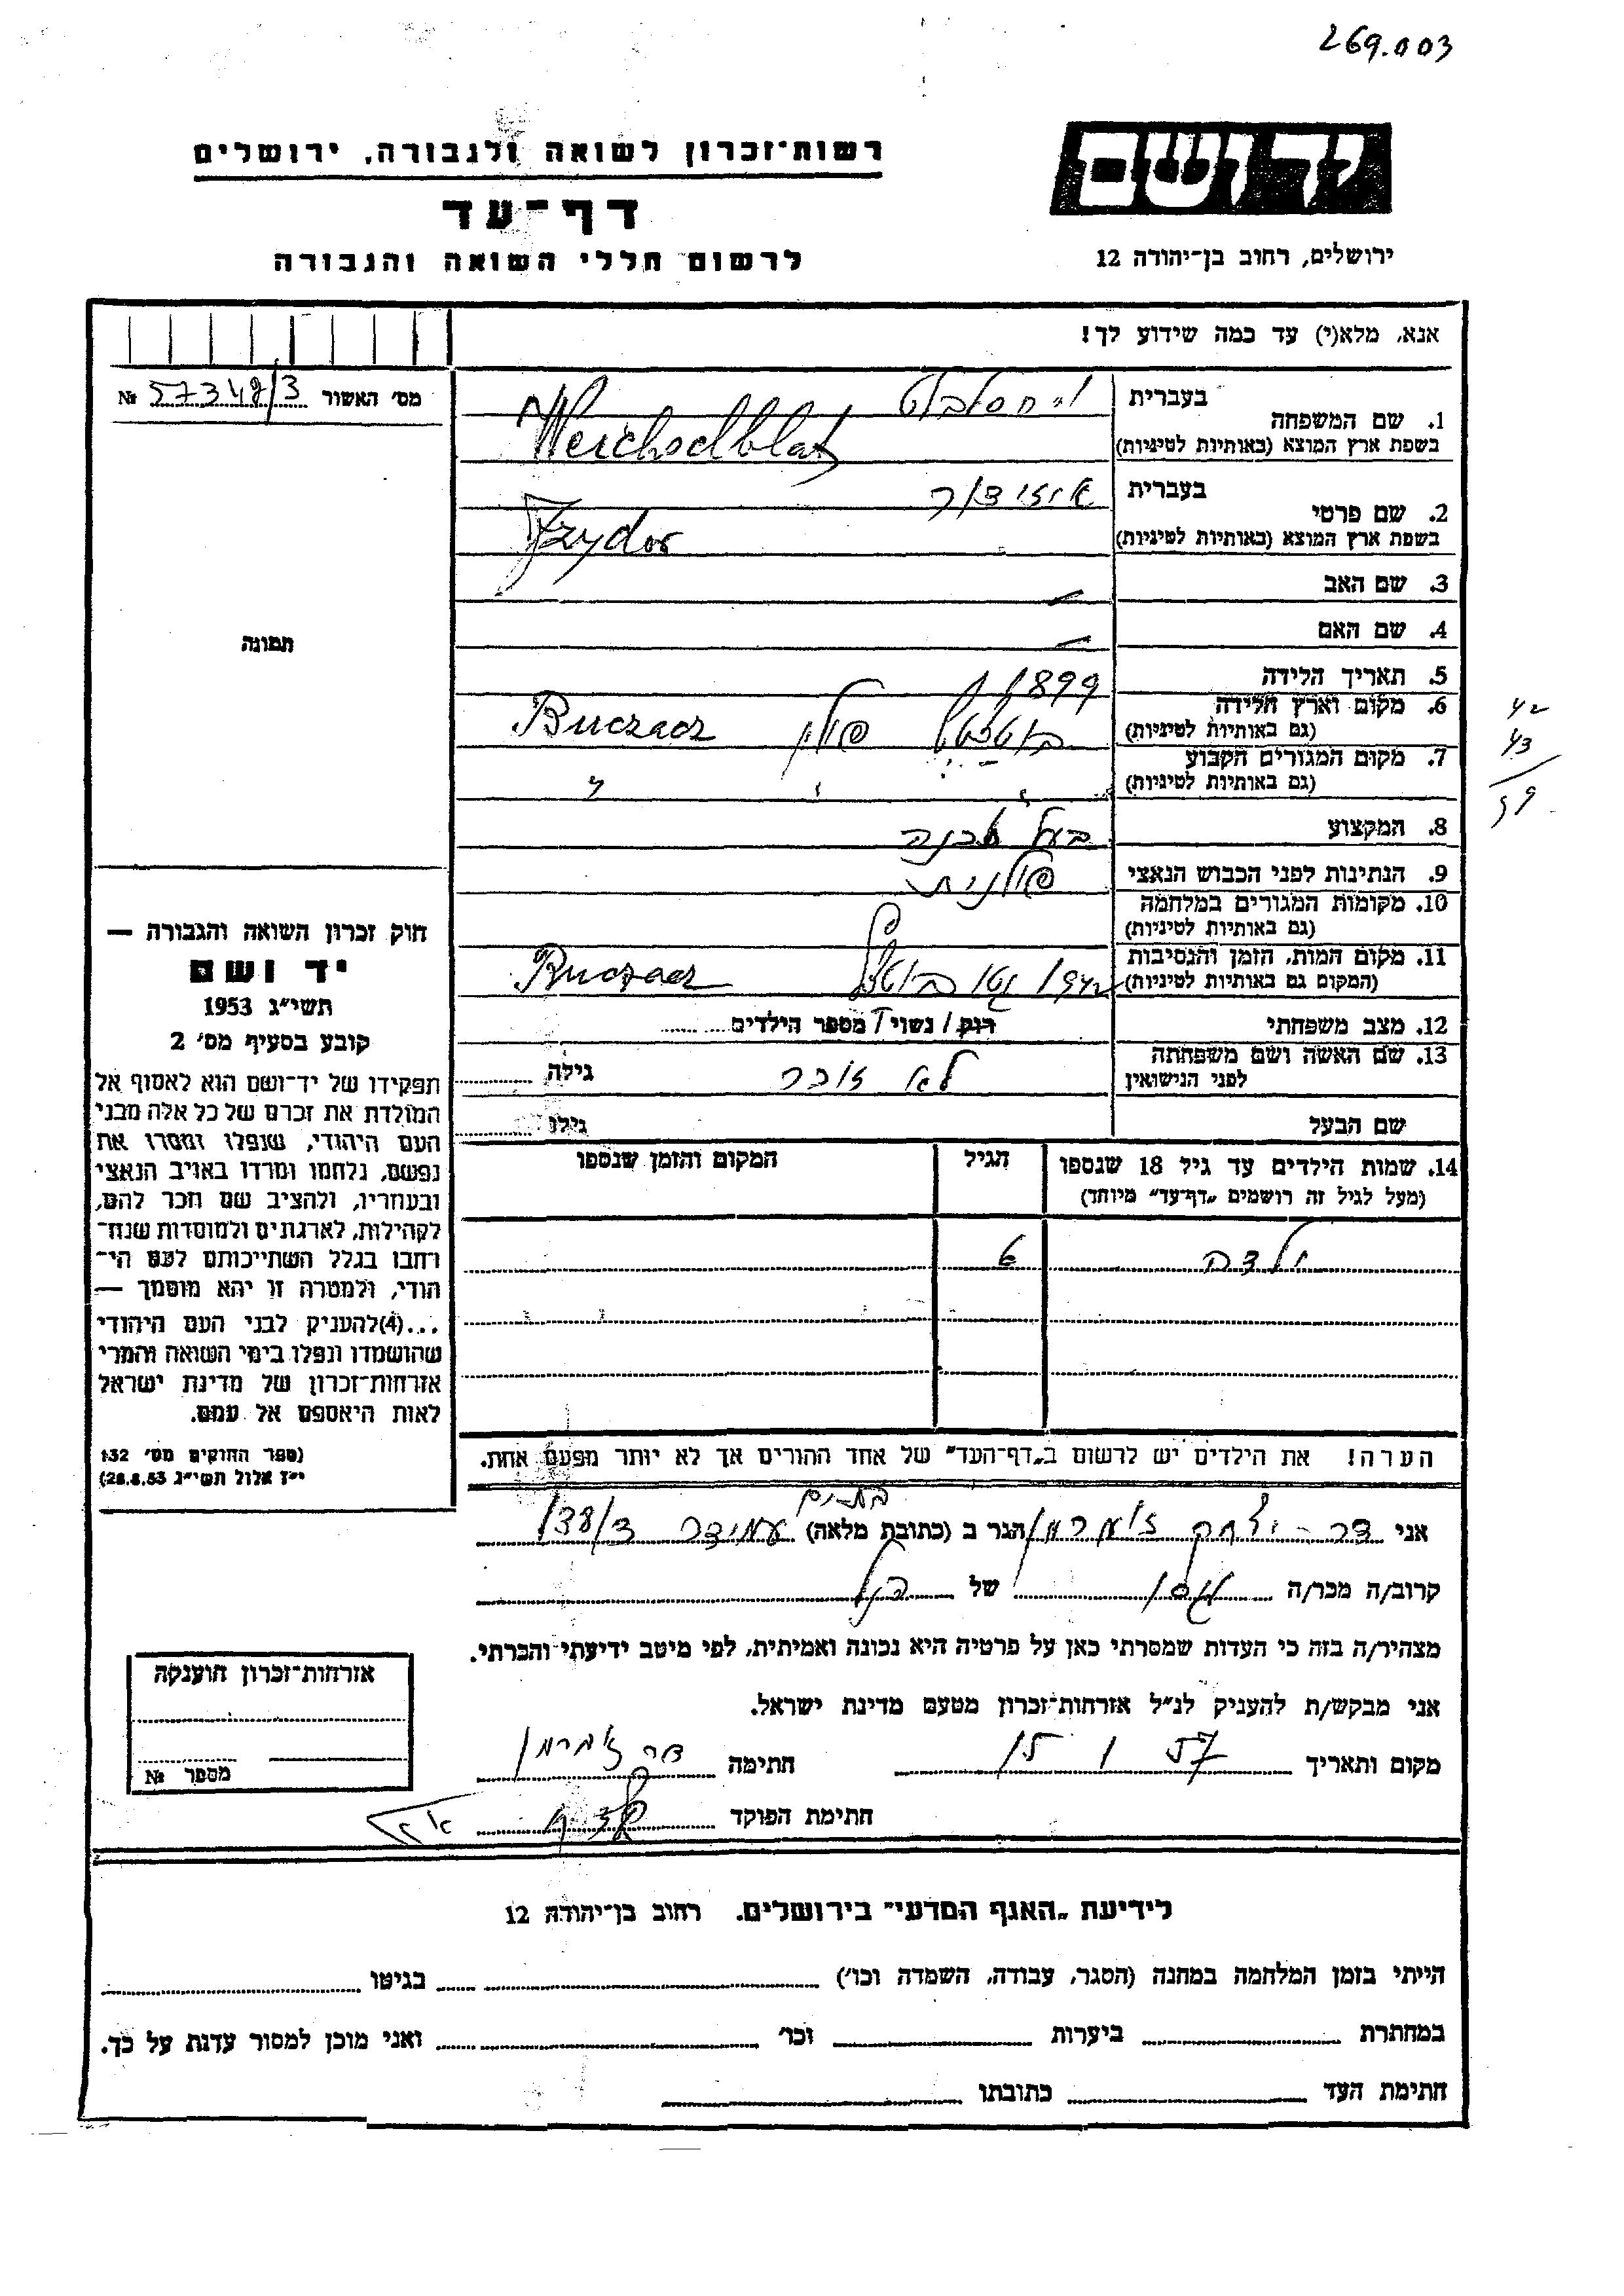 269.003
יד ושם
רשות־זכרון לשואה ולגבורה, ירושלים
דף־עד
לרשום חללי השואה והגבורה
ירושלים, רחוב בן־יהודה 12
אנא, מלא(י) עד כמה שידוע לך!
מס׳ האשור 57348/3 №
1. שם המשפחה
בעברית
בשפת ארץ המוצא (באותיות לטיניות) Weichselblat
2. שם פרטי
בעברית איזידור
בשפת ארץ המוצא (באותיות לטיניות) Izydor
3. שם האב —
4. שם האם —
תמונה
5. תאריך הלידה 1899
6. מקום וארץ הלידה
(גם באותיות לטיניות) פולין Buczacz
42
43
59
7. מקום המגורים הקבוע
(גם באותיות לטיניות) " " "
8. המקצוע בעל טבנה
9. הנתינות לפני הכבוש הנאצי פולנית
10. מקומות המגורים במלחמה
(גם באותיות לטיניות)
11. מקום המות, הזמן והנסיבות
(המקום גם באותיות לטיניות) Buczacz
12. מצב משפחתי רוק / נשוי / מספר הילדים
13. שם האשה ושם משפחתה
לפני הנישואין לאה זוכר גילה
שם הבעל גילו
14. שמות הילדים עד גיל 18 שנספו
(מעל לגיל זה רושמים „דף־עד״ מיוחד)
הגיל
המקום והזמן שנספו
ילדה 6
חוק זכרון השואה והגבורה —
יד ושם
תשי״ג 1953
קובע בסעיף מס׳ 2
תפקידו של יד־ושם הוא לאסוף אל
המולדת את זכרם של כל אלה מבני
העם היהודי, שנפלו ומסרו את
נפשם, נלחמו ומרדו באויב הנאצי
ובעוזריו, ולהציב שם וזכר להם,
לקהילות, לארגונים ולמוסדות שנח־
רבו בגלל השתייכותם לעם הי־
הודי, ולמטרה זו יהא מוסמך —
...(4)להעניק לבני העם היהודי
שהושמדו ונפלו בימי השואה והמרי
אזרחות־זכרון של מדינת ישראל
לאות היאספם אל עמם.
(ספר החוקים מס׳ 132
י״ז אלול תשי״ג 28.8.53)
הערה! את הילדים יש לרשום ב„דף־העד״ של אחד ההורים אך לא יותר מפעם אחת.
בת-ים
אני דר יצחק זימרמן הגר ב (כתובת מלאה) עמידר 138/3
קרוב/ה מכר/ה גיסו של הנ״ל
מצהיר/ה בזה כי העדות שמסרתי כאן על פרטיה היא נכונה ואמיתית, לפי מיטב ידיעתי והכרתי.
אני מבקש/ת להעניק לנ״ל אזרחות־זכרון מטעם מדינת ישראל.
מקום ותאריך 15 1 57 חתימה דר זימרמן
חתימת הפוקד
אזרחות־זכרון הוענקה
מספר №
לידיעת „האגף המדעי״ בירושלים. רחוב בן־יהודה 12
הייתי בזמן המלחמה במחנה (הסגר, עבודה, השמדה וכו׳) בגיטו
במחתרת ביערות וכו׳ ואני מוכן למסור עדות על כך.
חתימת העד כתובתו